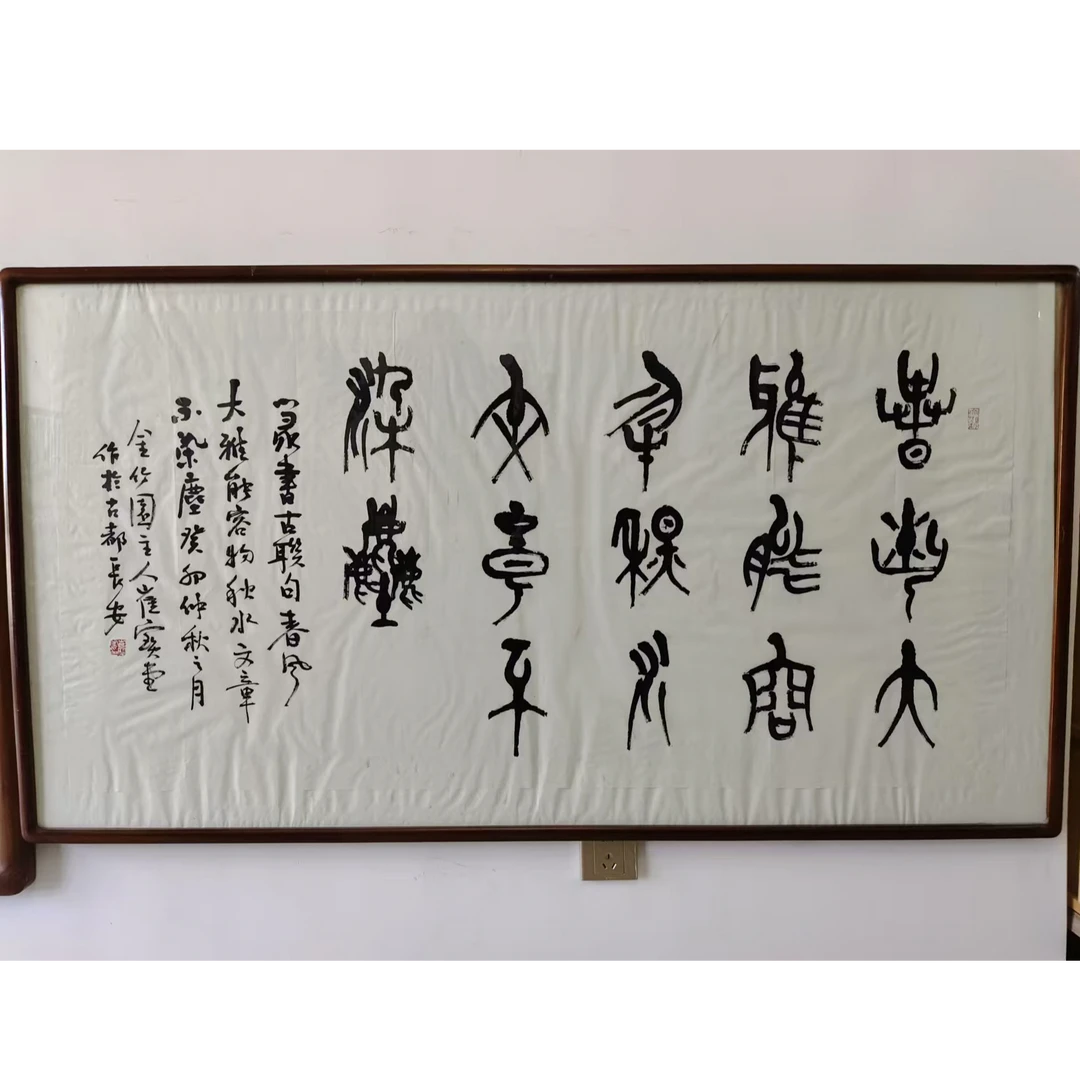 春風大
雅能容
物秋水
文章不
染塵
篆書古聯句春風
大雅能容物秋水文章
不染塵癸卯仲秋之月
金竹園主人崔寶堂
作於古都長安